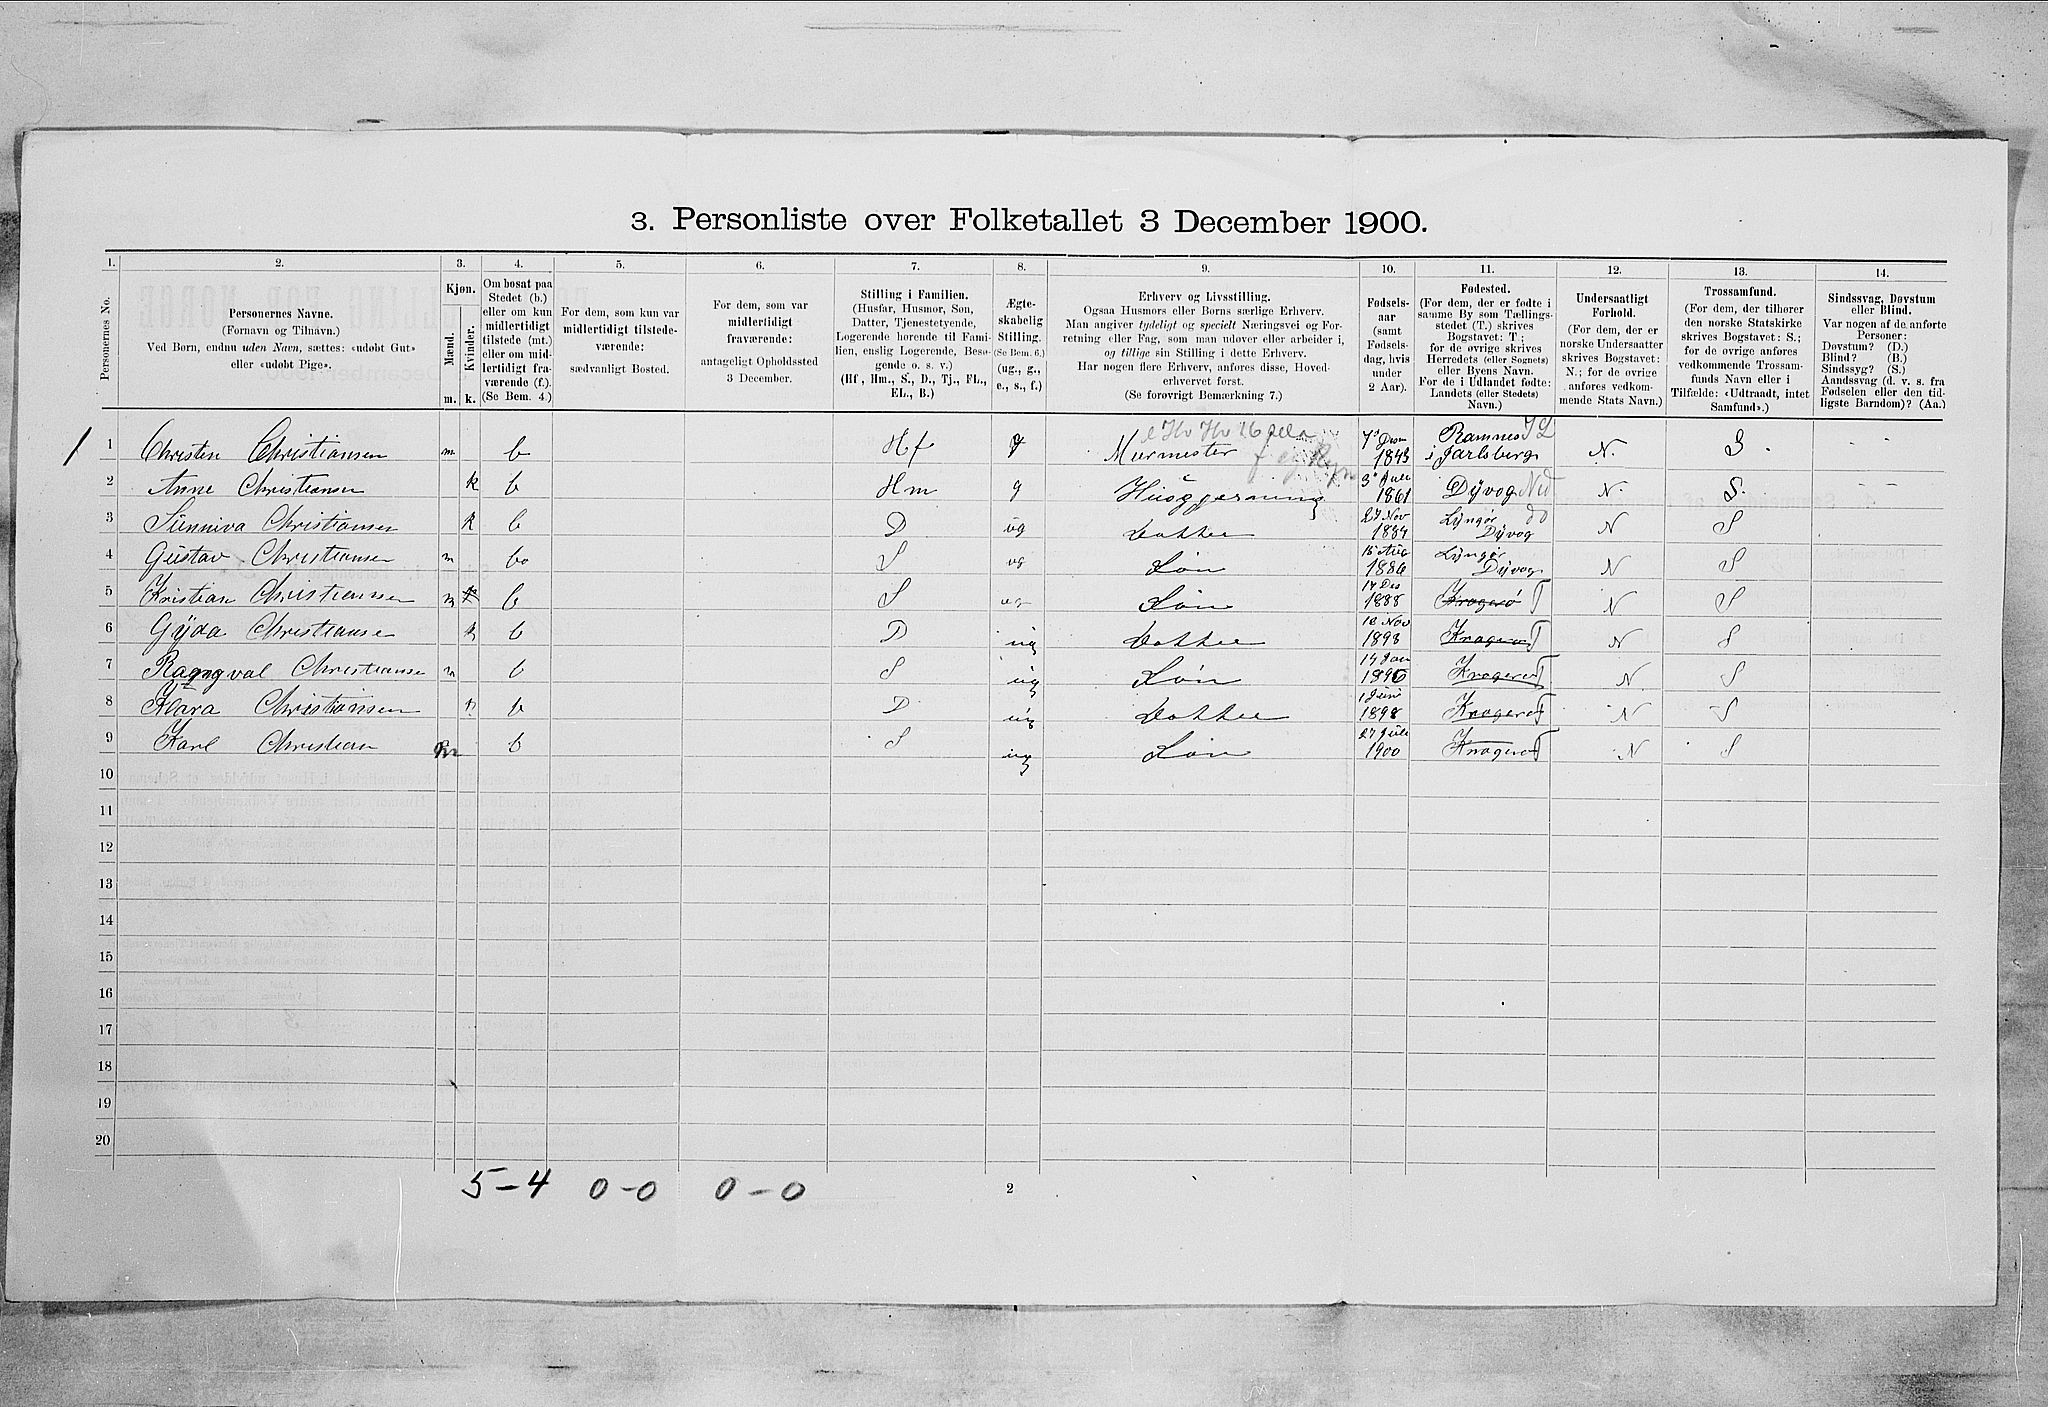 3. Personliste over Folketallet 3 December 1900.
1. 2. 3. 4. 5. 6. 7. 8. 9. 10. 11. 12. 13. 14.
Personernes No.
Personernes Navne.
(Fornavn og Tilnavn.)
Ved Børn, endnu uden Navn, sættes: «udøbt Gut»
eller «udøbt Pige».
Kjøn.
Mænd.
Kvinder.
m. k.
Om bosat paa
Stedet (b.)
eller om kun
midlertidigt
tilstede (mt.)
eller om mid-
lertidigt fra-
værende (f.).
(Se Bem. 4.)
For dem, som kun var
midlertidigt tilstede-
værende:
sædvanligt Bosted.
For dem, som var
midlertidigt
fraværende:
antageligt Opholdssted
3 December.
Stilling i Familien.
(Husfar, Husmor, Søn,
Datter, Tjenestetyende,
Logerende hørende til Fami-
lien, enslig Logerende, Besø-
gende o. s. v.)
(Hf., Hm., S., D., Tj., FL.,
EL., B.)
Ægte-
skabelig
Stilling.
(Se Bem. 6.)
(ug., g.,
e., s., f.)
Erhverv og Livsstilling.
Ogsaa Husmors eller Børns særlige Erhverv.
Man angiver tydeligt og specielt Næringsvei og For-
retning eller Fag, som man udøver eller arbeider i,
og tillige sin Stilling i dette Erhverv.
Har nogen flere Erhverv, anføres disse, Hoved-
erhvervet først.
(Se forøvrigt Bemærkning 7.)
Fødsels-
aar
(samt
Fødsels-
dag, hvis
under
2 Aar).
Fødested.
(For dem, der er fødte i
samme By som Tællings-
stedet (T.) skrives
Bogstavet: T;
for de øvrige skrives
Herredets (eller Sognets)
eller Byens Navn.
For de i Udlandet fødte:
Landets (eller Stedets)
Navn.)
Undersaatligt
Forhold.
(For dem, der er
norske Undersaatter
skrives Bogstavet:
N.; for de øvrige
anføres vedkom-
mende Stats Navn.)
Trossamfund.
(For dem, der tilhører
den norske Statskirke
skrives Bogstavet: S.;
for de øvrige anføres
vedkommende Trossam-
funds Navn eller i
Tilfælde: «Udtraadt, intet
Samfund».)
Sindssvag, Døvstum
eller Blind.
Var nogen af de anførte
Personer:
Døvstum? (D.)
Blind? (B.)
Sindssyg? (S.)
Aandssvag (d. v. s. fra
Fødselen eller den tid-
ligste Barndom)? (Aa.)
1 Christen Christiansen m b Hf g Murmester 1843 Ramnes i Jarlsberg N. S. - -
2 Anne Christiansen k b Hm g Husgjerning 3 Juli 1861 Dÿvog N. S. - -
3 Sünniva Christiansen k b D ug Datter 27 Nov 1884 Lÿngør Dÿvog N S
4 Gustav Christiansen m b S ug Søn 15 Aug 1886 Lÿngør Dÿvog N S
5 Kristian Christiansen m b S ug Søn 17 Des 1888 Kragerø T N S
6 Gÿda Christianse k b D ug Datter Nov 1893 Kragerø T N S
7 Ragngval Christianse m b S ug Søn 14 Jan 1896 Kragerø T N S
8 Klara Christiansen k b D ug Datter 1 Juni 1898 Kragerø T N S
9 Karl Christian m b S ug Søn 27 Juli 1900 Kragerø T N S
10
11
12
13
14
15
16
17
18
19
20
5-4 0-0 0-0 2